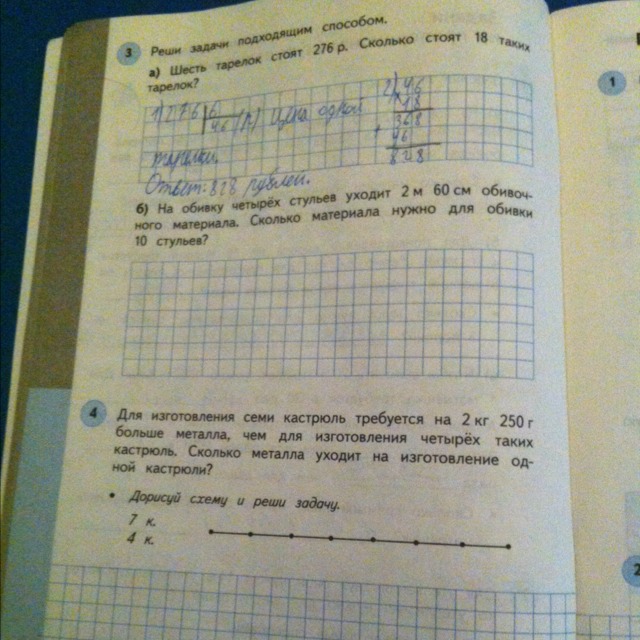 3 Реши задачи подходящим способом.
а) Шесть тарелок стоят 276 р. Сколько стоят 18 таких
тарелок?
1) 276 6 2) 46
46 (р) цена одной 18
368
+ 46
тарелки. 828
Ответ: 828 рублей.
б) На обивку четырёх стульев уходит 2 м 60 см обивоч-
ного материала. Сколько материала нужно для обивки
10 стульев?
4 Для изготовления семи кастрюль требуется на 2 кг 250 г
больше металла, чем для изготовления четырёх таких
кастрюль. Сколько металла уходит на изготовление од-
ной кастрюли?
• Дорисуй схему и реши задачу.
7 к.
4 к.
1
2